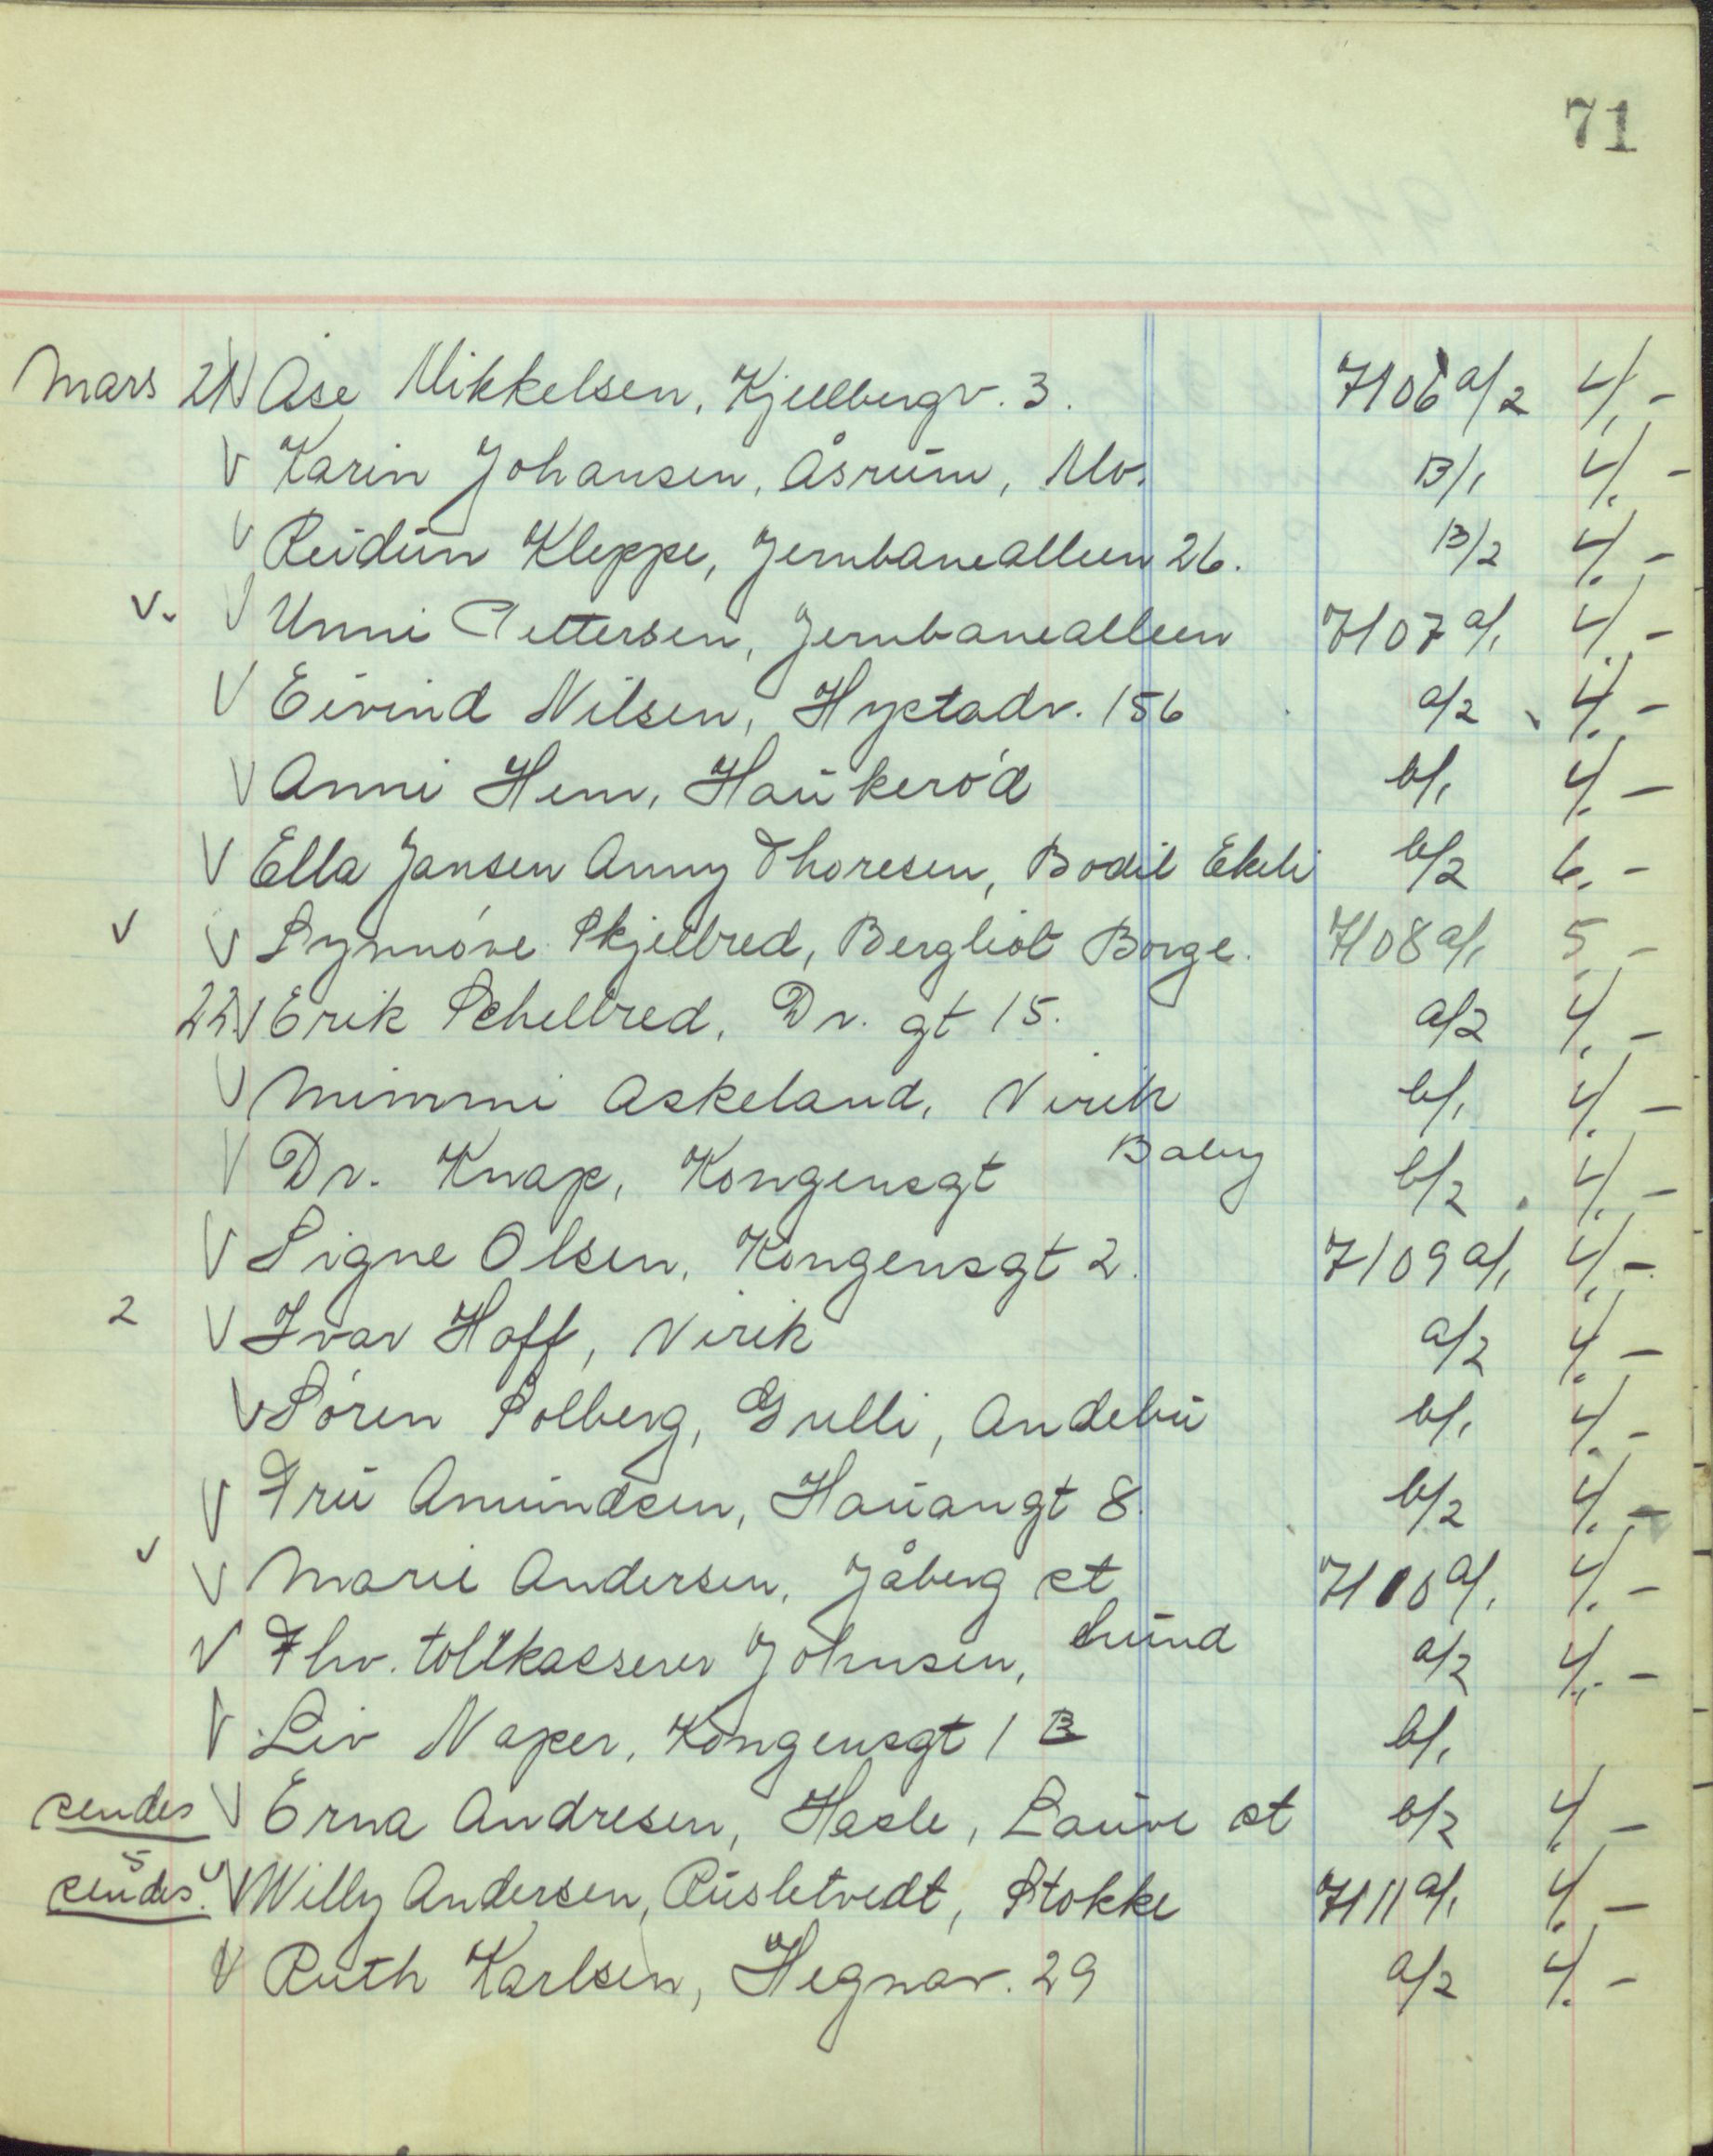 71
Mars 21 V Åse Mikkelsen, Kjellbergv. 3. 7106 a/2 4,-
V Karin Johansen, Åsrum, Mo. B/1 4,-
V Reidun Kleppe, Jernbanealleen 26. B/2 4,-
V. V Unni Pettersen, Jernbanealleen 7107 a/1 4,-
V Eivind Nilsen, Hystadv. 156 a/2 4,-
V Anni Hem, Haukerød b/1 4,-
V Ella Jansen Anny Thoresen, Bodil Ekeli b/2 6,-
V V Synnøve Skjelbred, Bergliot Borge. 7108 a/1 5,-
22. V Erik Schelbred, Dr. gt 15. a/2 4,-
V Mimmi Askeland, Virik b/1 4,-
V Dr. Knap, Kongensgt Baby b/2 4,-
V Signe Olsen, Kongensgt 2. 7109 a/1 4,-
2 V Ivar Hoff, Virik a/2 4,-
V Søren Solberg, Gulli, Andebu b/1 4,-
V Fru Amundsen, Hauangt 8. b/2 4,-
V V Marie Andersen, Jåberg st 7110 a/1 4,-
V Fhv. tollkasserer Johnsen, hund a/2 4,-
V Liv Naper, Kongensgt 1 B b/1
sendes V Erna Andresen, Hasle, Lauve st b/2 4,-
5 V
sendes. V Willy Andersen, Rusletvedt, Stokke 7111 a/1 4,-
V Ruth Karlsen, Hegnav. 29 a/2 4,-